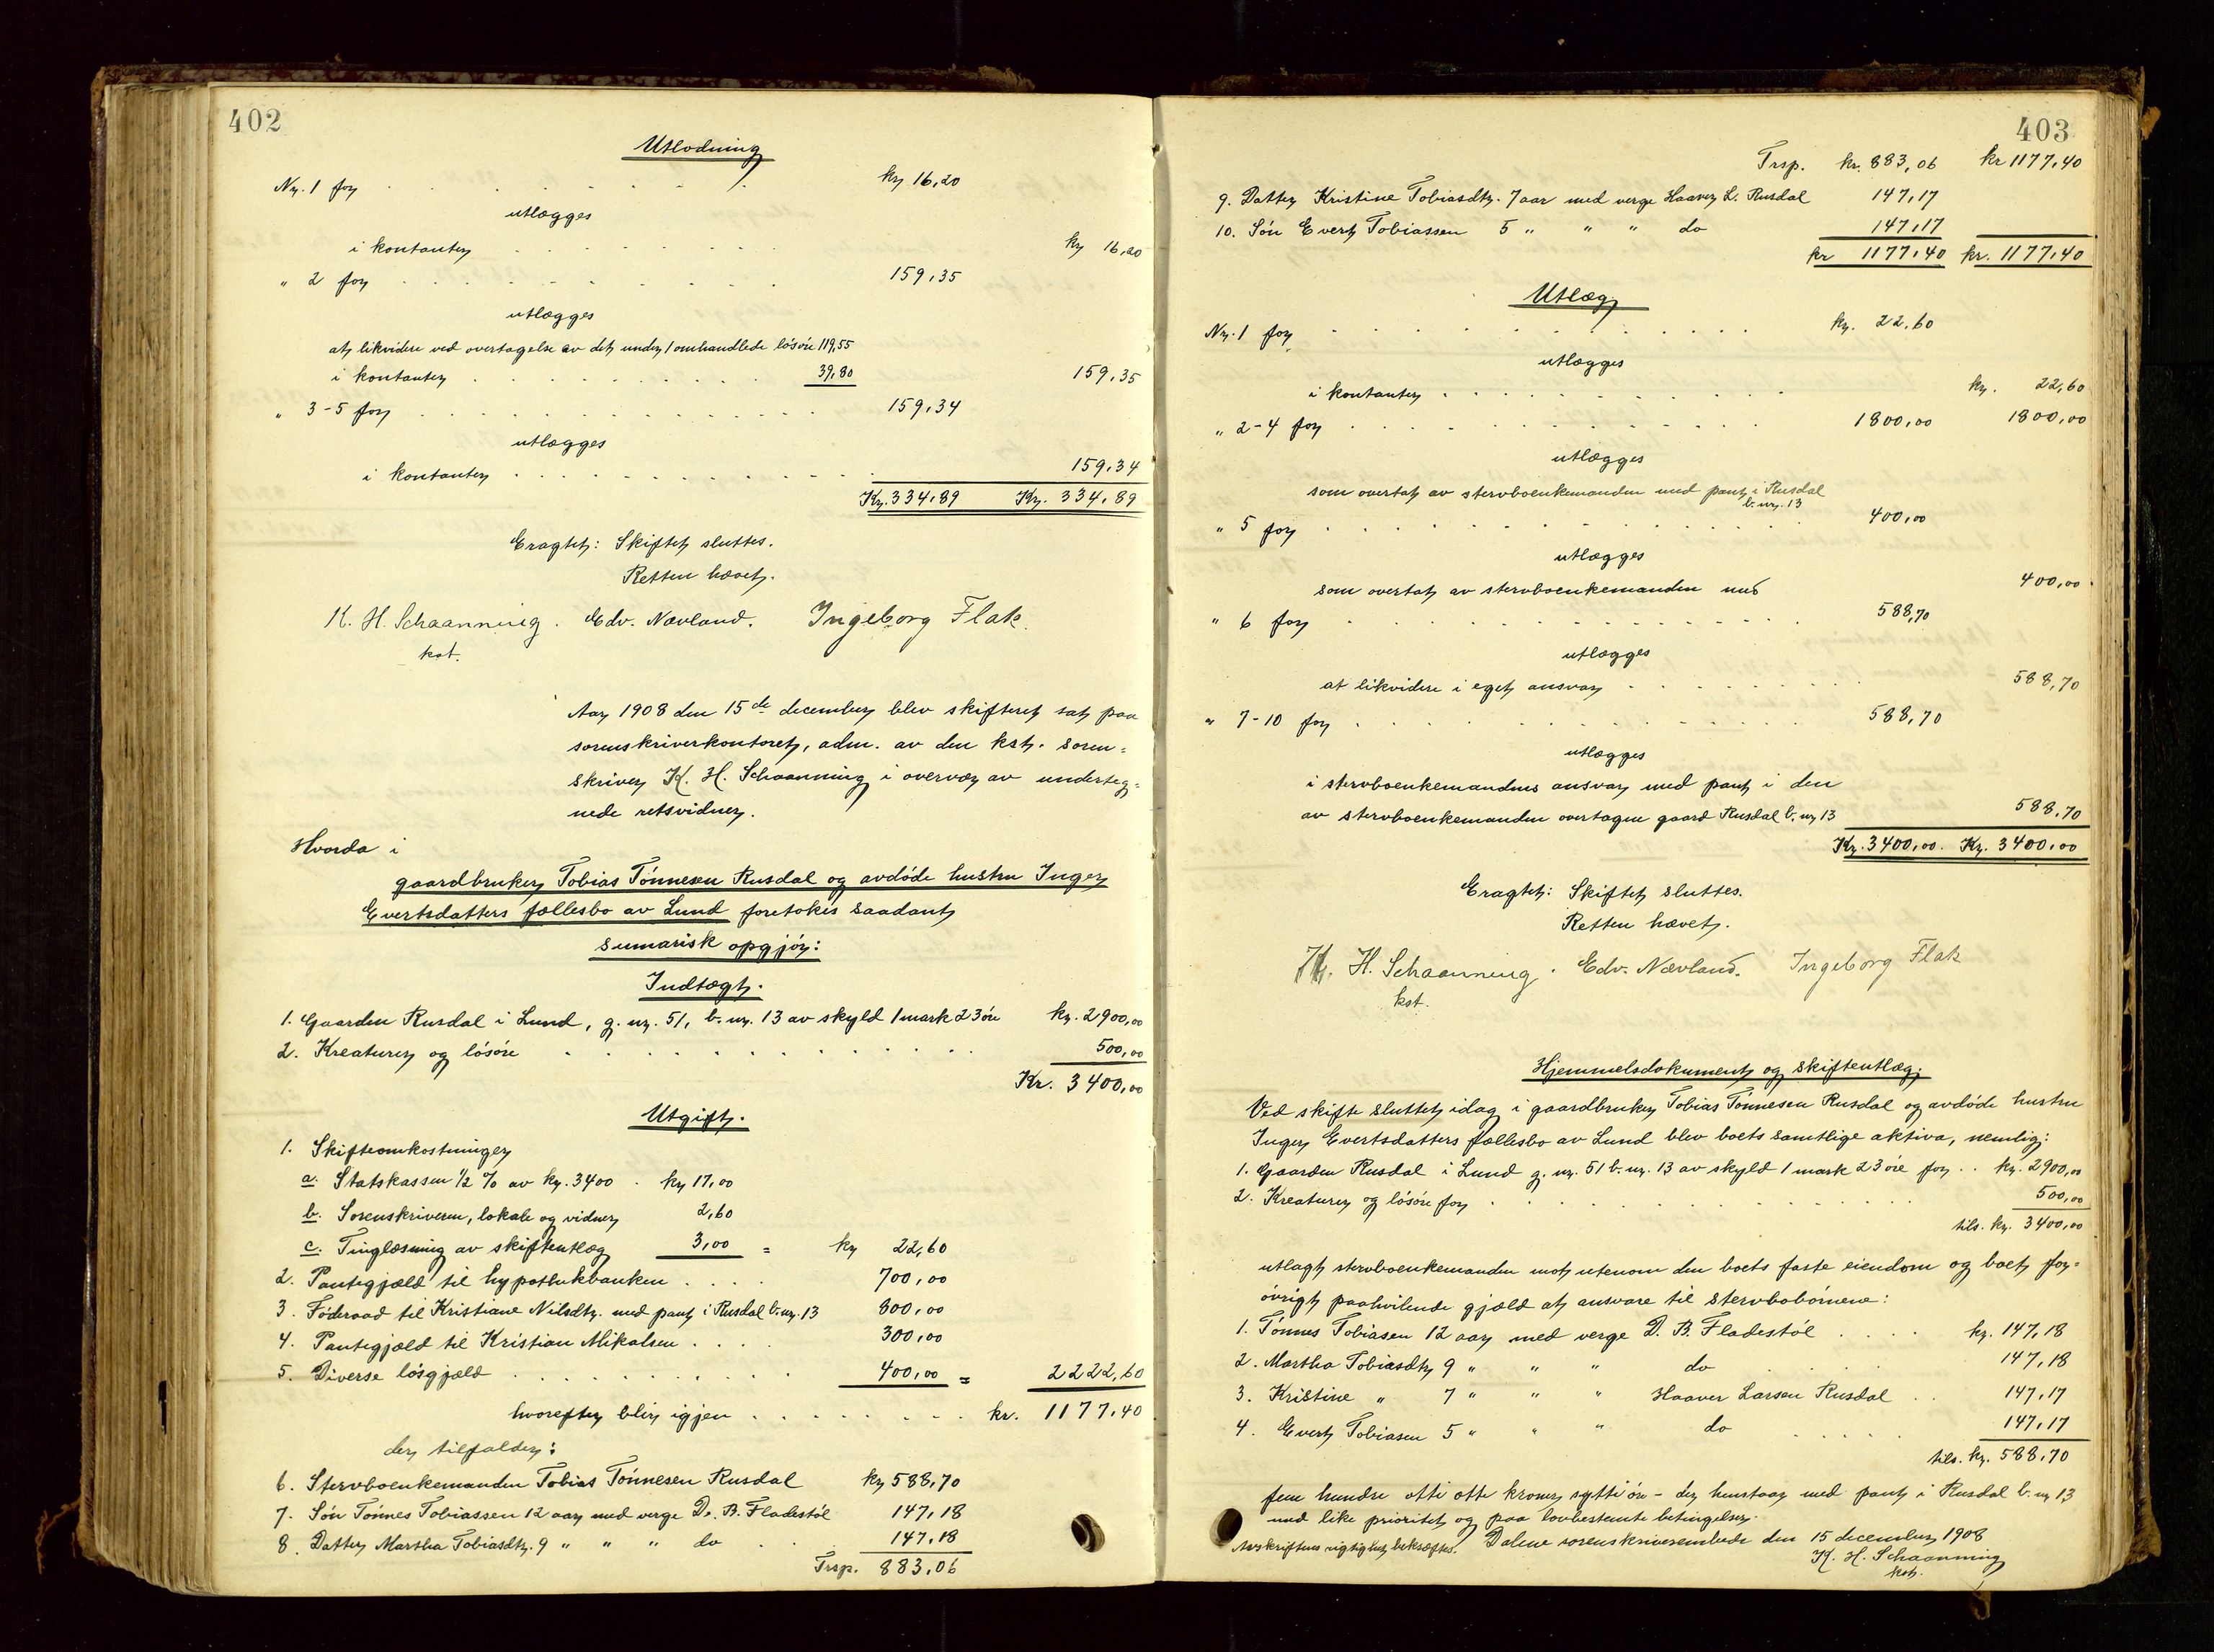 402
Utlodning
Nr. 1 for . . . . . . . kr 16,20
utlægges
i kontanter . . . . . . kr 16,20
" 2 for . . . . . . . . 159,35
utlægges
at likvidere ved overtagelse av det under 1 omhandlede løsøre 119,55
i kontanter . . . . . . . 39,80 159,35
" 3-5 for . . . . . . . . 159,34
utlægges
i kontanter . . . . . . . 159,34
Kr. 334,89 Kr. 334,89
Eragtet: Skiftet sluttes.
Retten hævet.
K. H. Schaanning. Edv. Nævland. Ingeborg Flak.
kst.
Aar 1908 den 15de december blev skifteret sat paa
sorenskriverkontoret, adm. av den kst. soren=
skriver K. H. Schaanning i overvær av underteg=
nede retsvidner.
Hvorda i
gaardbruker Tobias Tønnesen Rusdal og avdøde hustru Inger
Evertsdatters fællesbo av Lund foretokes saadant
sumarisk opgjør:
Indtægt.
1. Gaarden Rusdal i Lund, g. nr. 51, b. nr. 13 av skyld 1 mark 23 øre kr. 2900,00
2. Kreaturer og løsøre . . . . . . . 500,00
Kr. 3400,00
Utgift.
1. Skifteomkostninger
a. Statskassen 1/2 % av kr. 3400 . kr 17,00
b. Sorenskriveren, lokale og vidner 2,60
c. Tinglæsning av skifteutlæg 3,00 = kr 22,60
2. Pantegjæld til hypothekbanken . . . . 700,00
3. Føderaad til Kristiane Nilsdtr. med pant i Rusdal b. nr. 13 800,00
4. Pantegjæld til Kristian Mikalsen . . . . 300,00
5. Diverse løsgjæld . . . . . . . . 400,00 = 2222,60
hvorefter blir igjen . . . . . . . . kr. 1177,40
der tilfalder:
6. Stervboenkemanden Tobias Tønnesen Rusdal kr 588,70
7. Søn Tønnes Tobiassen 12 aar med verge D. B. Fladestøl 147,18
8. Datter Martha Tobiasdtr. 9 " " " do . . 147,18
Trsp. 883,06
403
Trsp. kr. 883,06 kr 1177,40
9. Datter Kristine Tobiasdtr. 7 aar med verge Haaver L. Rusdal 147,17
10. Søn Evert Tobiassen 5 " " " do 147,17
kr 1177,40 kr. 1177,40
Utlæg
Nr. 1 for . . . . . . . . kr. 22,60
utlægges
i kontanter . . . . . . . . kr. 22,60
" 2-4 for . . . . . . . . 1800,00 1800,00
utlægges
som overtat av stervboenkemanden med pant i Rusdal
b. nr. 13
" 5 for . . . . . . . . 400,00
utlægges
som overtat av stervboenkemanden med 400,00
" 6 for . . . . . . . . 588,70
utlægges
at likvidere i eget ansvar . . . . . . 588,70
" 7-10 for . . . . . . . . 588,70
utlægges
i stervboenkemandens ansvar med pant i den
av stervboenkemanden overtagne gaard Rusdal b. nr 13 588,70
Kr. 3400,00. Kr. 3400,00
Eragtet: Skiftet sluttes.
Retten hævet.
K. H. Schaanning. Edv. Nævland. Ingeborg Flak
kst.
Hjemmelsdokument og skifteutlæg.
Ved skifte sluttet idag i gaardbruker Tobias Tønnesen Rusdal og avdøde hustru
Inger Evertsdatters fællesbo av Lund blev boets samtlige aktiva, nemlig:
1. Gaarden Rusdal i Lund g. nr. 51 b. nr. 13 av skyld 1 mark 23 øre for . . kr. 2900,00
2. Kreaturer og løsøre for . . . . . . . . 500,00
tils. kr. 3400,00
utlagt stervboenkemanden mot utenom den boets faste eiendom og boet for=
øvrigt paahvilende gjæld at ansvare til stervbobørnene:
1. Tønnes Tobiasen 12 aar med verge D. B. Fladestøl . . . . kr. 147,18
2. Martha Tobiasdtr 9 " " " do . . . . 147,18
3. Kristine " 7 " " " Haaver Larsen Rusdal . . 147,17
4. Evert Tobiasen 5 " " " do . . . . . 147,17
tils. kr. 588,70
fem hundre otti otte kroner sytti øre - der henstaar med pant i Rusdal b. nr 13
med like prioritet og paa lovbestemte betingelser.
Avskriftens rigtighet bekræftes. Dalene sorenskriverembede den 15 december 1908
K. H. Schaanning
kst.